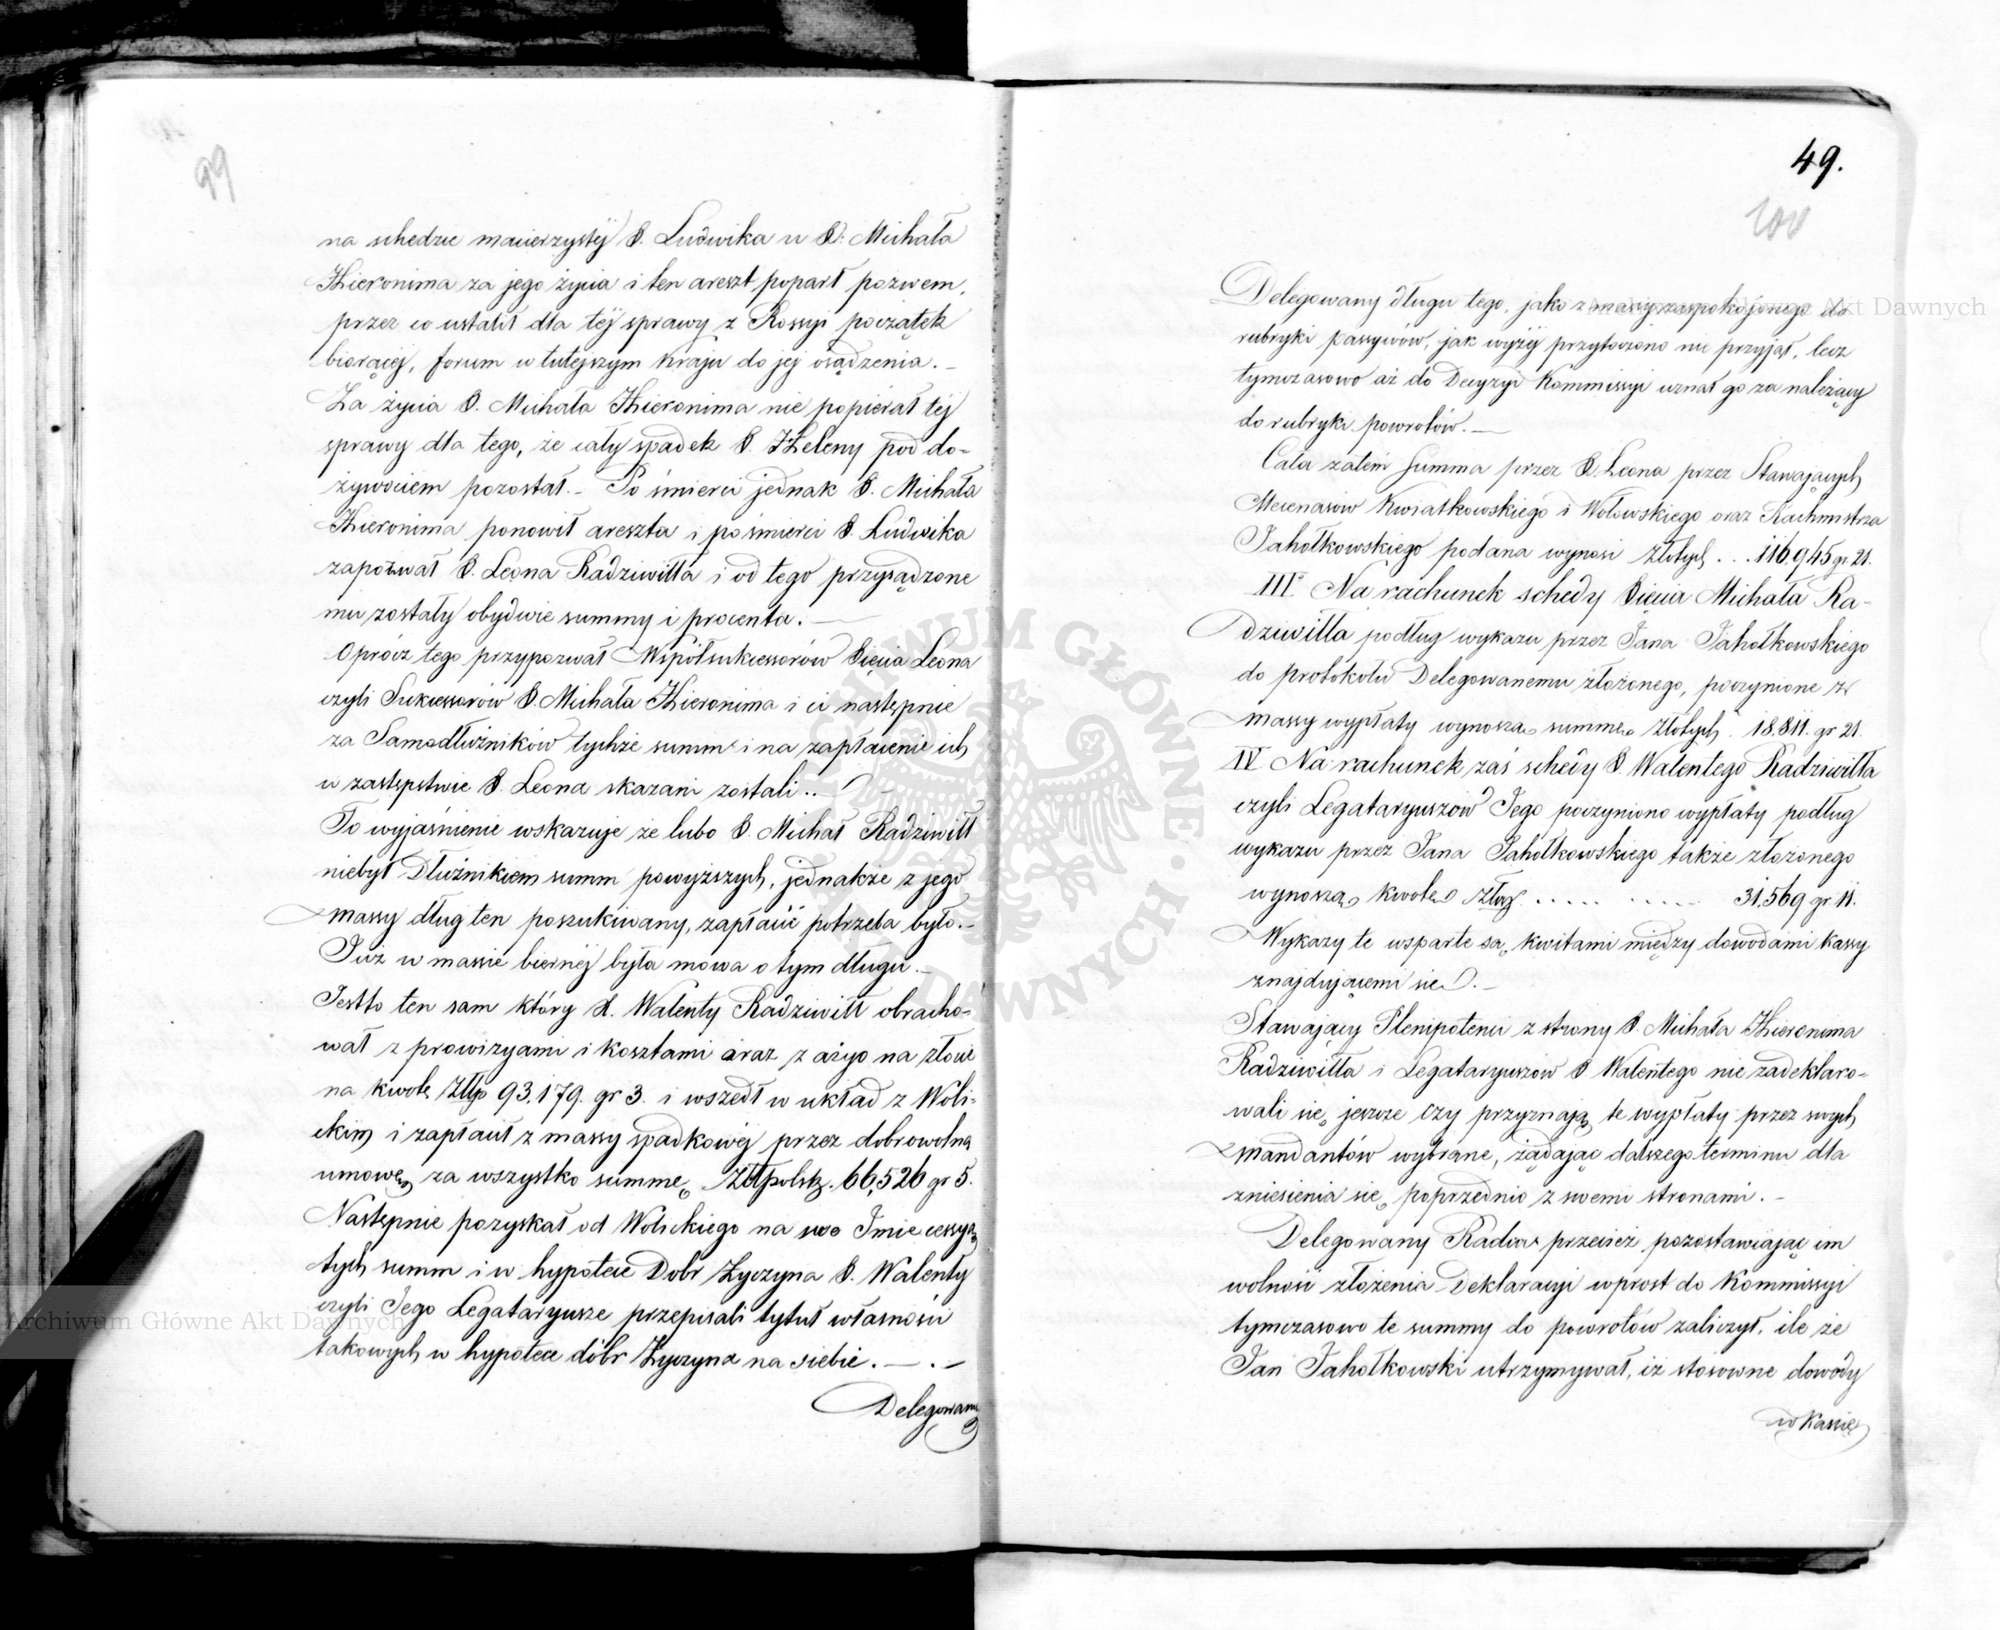 99
na schedzie macierzystéj X. Ludwika u X. Michała
Hieronima za jego życia i ten areszt popart pozwem,
przez co ustalił dla téj sprawy z Rossyi początek
biorącéj, forum w tutejszym Kraju do jej osądzenia. –
Za życia X. Michała Hieronima nie popierał téj
sprawy dla tego, że cały spadek X. Heleny pod do-
żywociem pozostał. – Po śmierci jednak X. Michała
Hieronima ponowił areszta i po śmierci X. Ludwika
zapozwał X. Leona Radziwiłła i od tego przysądzone
mu zostały obydwie summy i procenta. –
Oprócz tego przypozwał Współsukcessorów Xięcia Leona
czyli Sukcessorów X. Michała Hieronima i ci następnie
za Samodłużników tychże summ i na zapłacenie ich
w zastępstwie X. Leona skazani zostali. –
To wyjaśnienie wskazuje że lubo X. Michał Radziwiłł
niebył Dłużnikiem summ powyższych, jednakże z jego
massy dług ten poszukiwany, zapłacić potrzeba było. –
Już w massie biernéj była mowa o tym długu. –
Jestto ten sam który X. Walenty Radziwiłł obracho-
wał z prowizyami i kosztami oraz z ażyo na złocie
na kwotę Złtp 93,179. gr 3. i wszedł w układ z Woli-
ckim i zapłacił z massy spadkowéj przez dobrowolną
umowę za wszystko summę Złtpolsk. 66,526 gr 5.
Następnie pozyskał od Wolickiego na swe Imie cessyą
tych summ i w hypotece Dobr Zyczyna X. Walenty
czyli Jego Legataryusze przepisali tytuł własności
takowych w hypotece dóbr Zyczyna na siebie. – . –
Delegowany
49.
100
Delegowany długu tego, jako z massy zaspokojonego do
rubryki passywów, jak wyżéj przytoczono nie przyjął, lecz
tymczasowo aż do Decyzyi Kommissyi uznał go za należący
do rubryki powrotów. –
Cała zatém Summa przez X. Leona przez Stawających
Mecenasów Kwiatkowskiego i Wołowskiego oraz Rachmistrza
Jahołkowskiego podana wynosi złotych . . . 116,945 gr 21.
III. Na rachunek schedy Xięcia Michała Ra-
dziwiłła podług wykazu przez Jana Jahołkowskiego
do protokołu Delegowanemu złożonego, poczynione z
massy wypłaty wynoszą summę złotych . 18.811. gr 21.
IV. Na rachunek zaś schedy X. Walentego Radziwiłła
czyli Legataryuszów Jego poczyniono wypłaty podług
wykazu przez Jana Jahołkowskiego także złożonego
wynoszą kwotę złtp. . . . . . . . . . . 31,569 gr 11.
Wykazy te wsparte są kwitami między dowodami kassy
znajdującemi się. –
Stawający Plenipotenci z strony X. Michała Hieronima
Radziwiłła i Legataryuszów X Walentego nie zadeklaro-
wali się jeszcze czy przyznają te wypłaty przez swych
mandantów wybrane, żądając dalszego terminu dla
zniesienia się poprzednio z swemi stronami. –
Delegowany Radca przecież pozostawiając im
wolność złożenia Deklaracyi wprost do Kommissyi
tymczasowo te summy do powrotów zaliczył, ile że
Jan Jahołkowski utrzymywał, iż stosowne dowody
w Kassie
Archiwum Główne Akt Dawnych
Archiwum Główne Akt Dawnych
ARCHIWUM GŁÓWNE AKT DAWNYCH